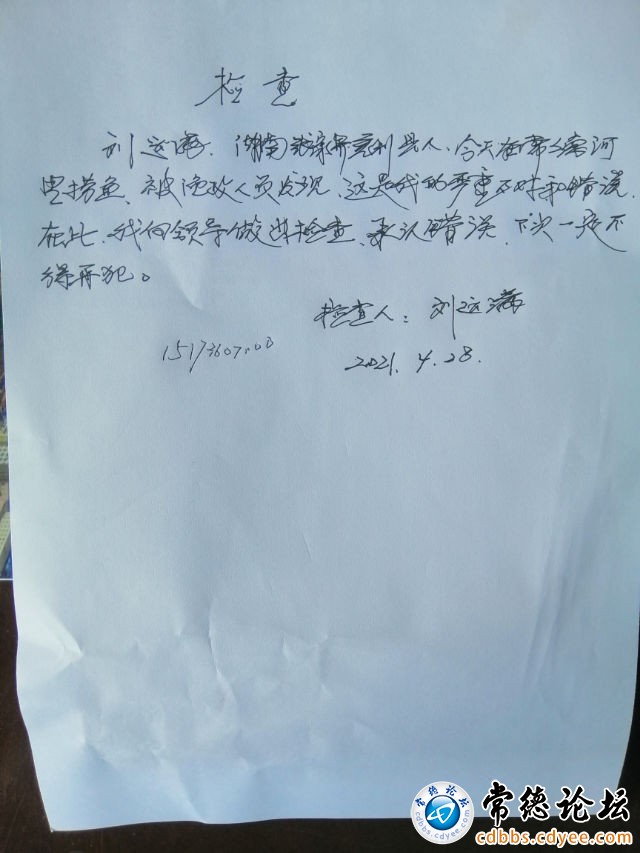 检查
刘运满, 湖南张家界慈利县人, 今天在常德河
里捞鱼, 被渔政人员发现, 这是我的严重不对和错误,
在此, 我向领导做此检查, 承认错误, 下次一定不
得再犯。
检查人: 刘运满
2021.4.28.
常德论坛
cdbbs.cdyee.com